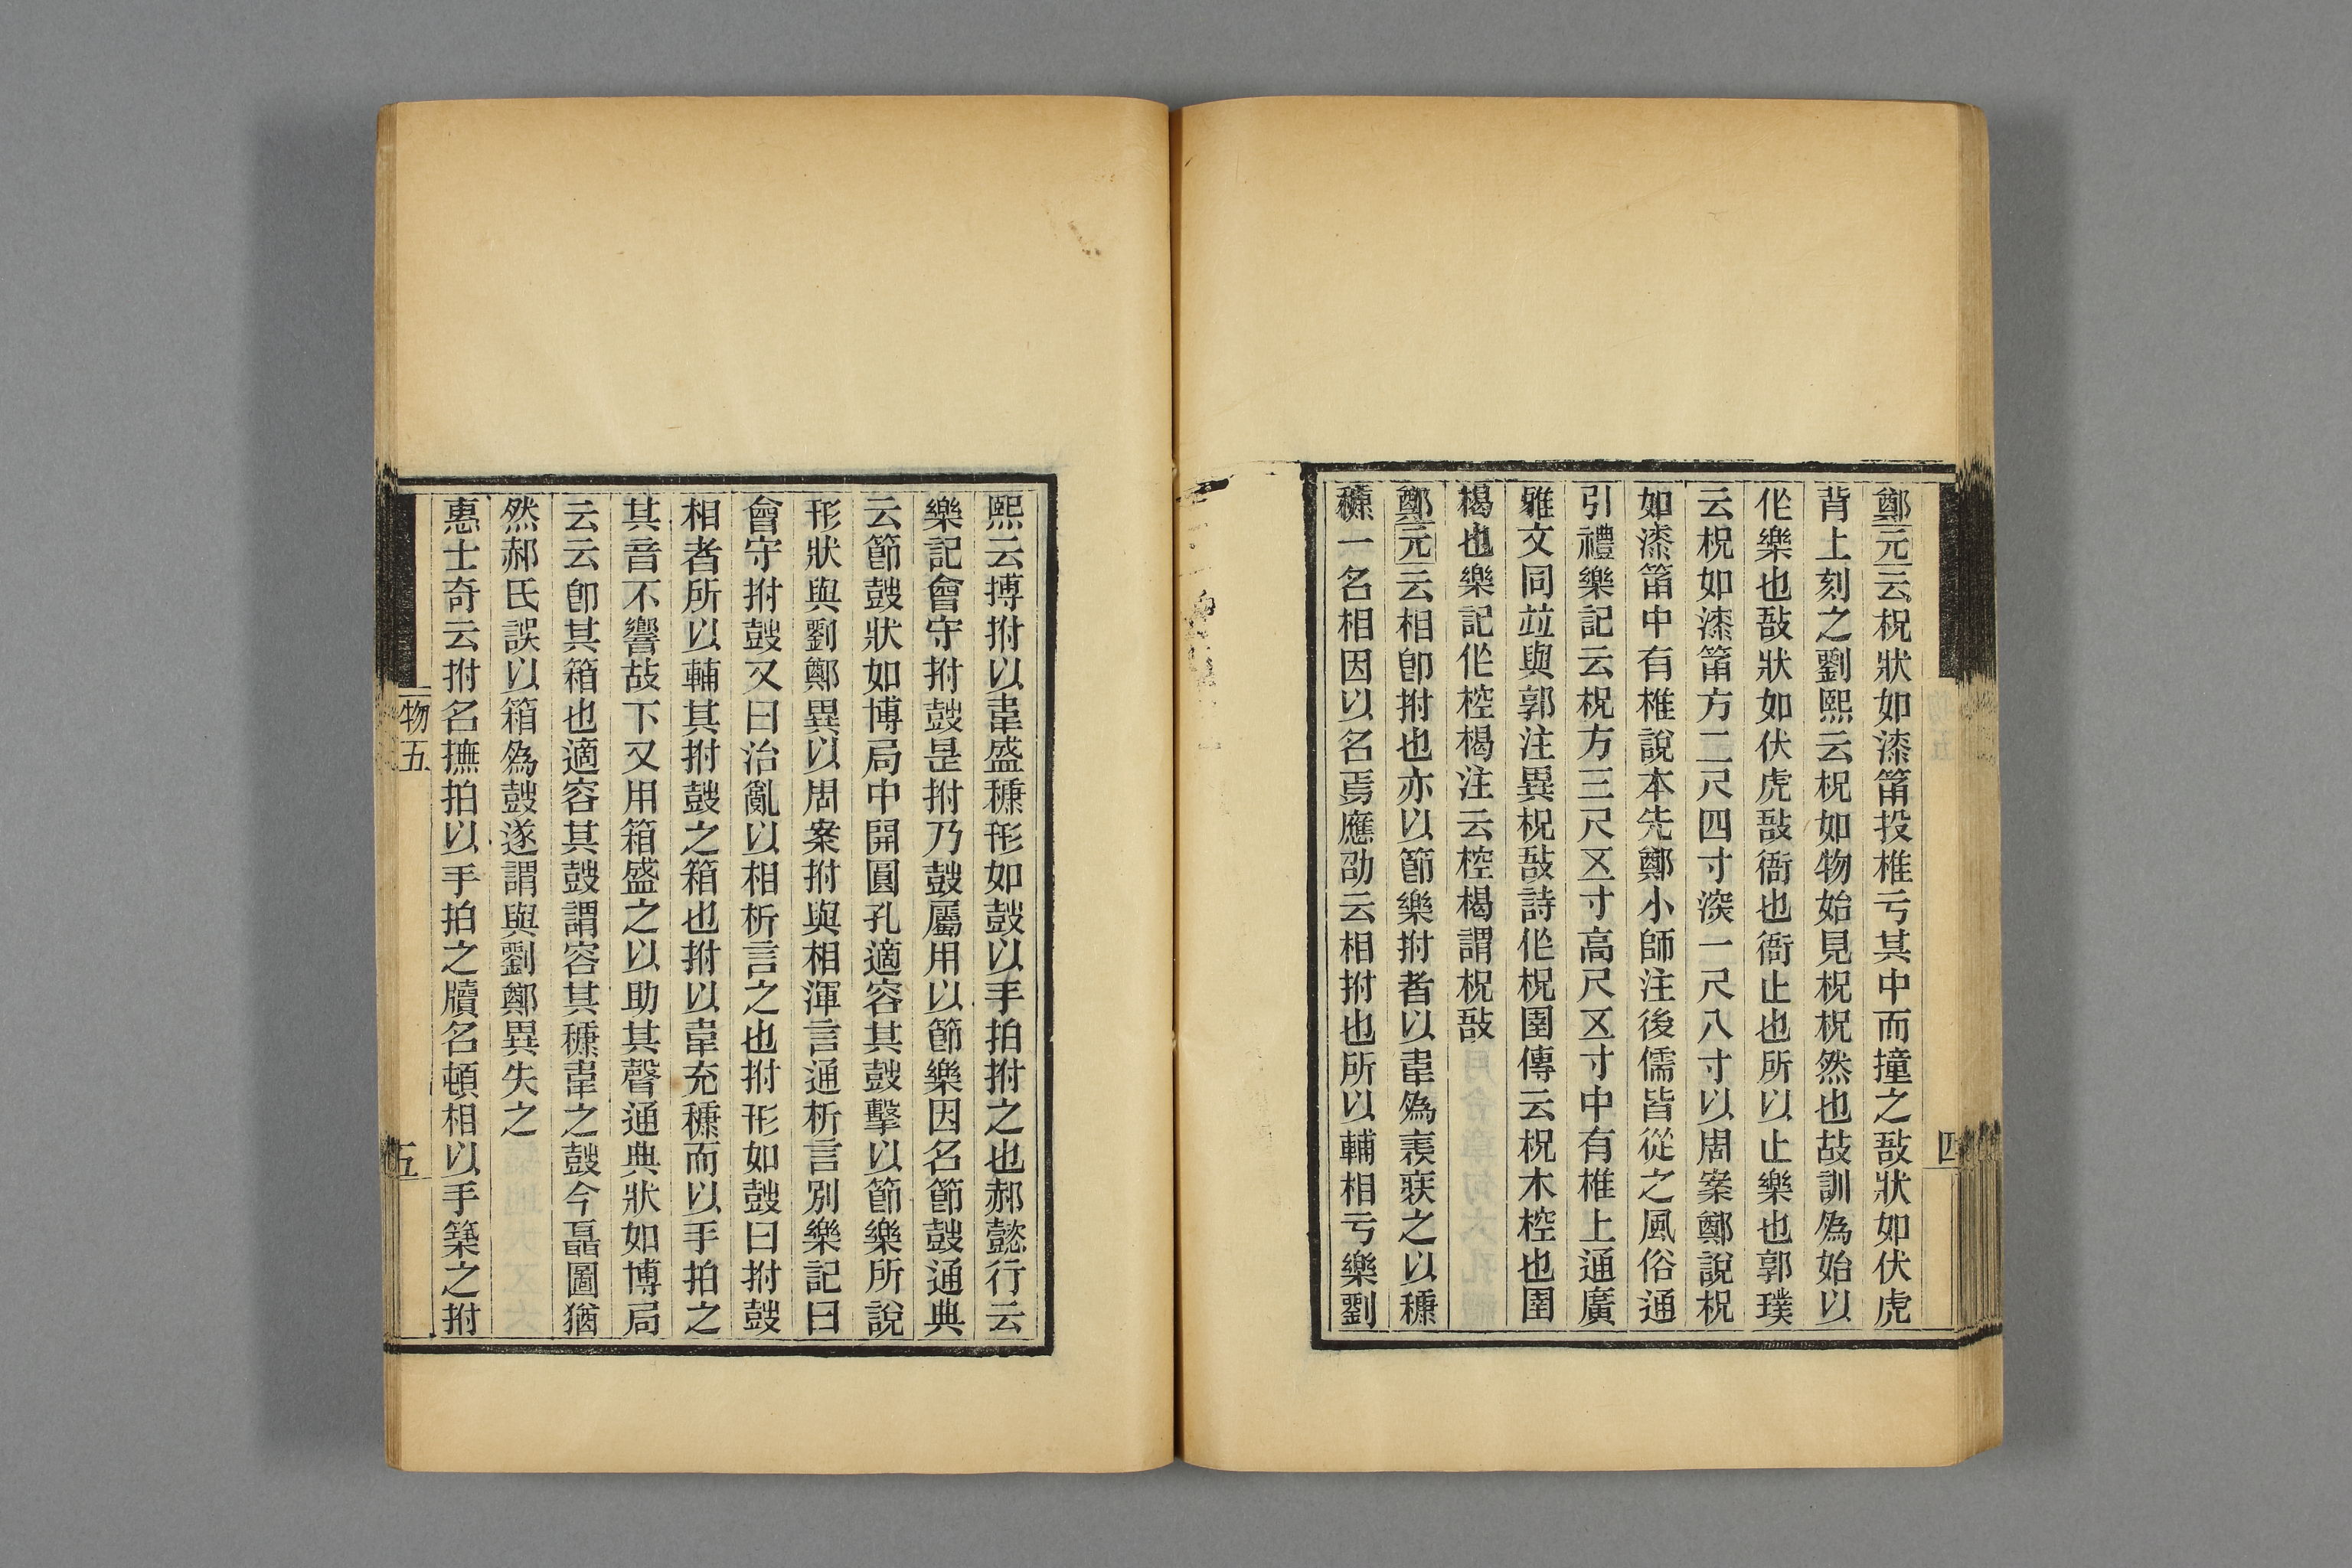 鄭元云柷狀如漆筩投椎亏其中而撞之敔狀如伏虎
背上刻之劉熙云柷如物始見柷柷然也故訓爲始以
作樂也敔狀如伏虎敔衙也衙止也所以止樂也郭璞
云柷如漆筩方二尺四寸深一尺八寸以周案鄭說柷
如漆筩中有椎說本先鄭小師注後儒皆從之風俗通
引禮樂記云柷方三尺五寸高尺五寸中有椎上通廣
雅文同竝與郭注異柷敔詩作柷圉傳云柷木椌也圉
楬也樂記作椌楬注云椌楬謂柷敔
鄭元云相卽拊也亦以節樂拊者以韋爲表裝之以穅
穅一名相因以名焉應劭云相拊也所以輔相亏樂劉
四
熙云搏拊以韋盛穅形如鼓以手拍拊之也郝懿行云
樂記會守拊鼓是拊乃鼓屬用以節樂因名節鼓通典
云節鼓狀如博局中開圓孔適容其鼓擊以節樂所說
形狀與劉鄭異以周案拊與相渾言通析言別樂記曰
會守拊鼓又曰治亂以相析言之也拊形如鼓曰拊鼓
相者所以輔其拊鼓之箱也拊以韋充穅而以手拍之
其音不響故下又用箱盛之以助其聲通典狀如博局
云云卽其箱也適容其鼓謂容其穅韋之鼓今聶圖猶
然郝氏誤以箱爲鼓遂謂與劉鄭異失之
惠士奇云拊名撫拍以手拍之牘名頓相以手築之拊
物五
五